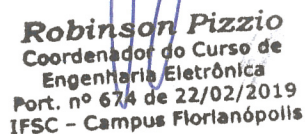 Robinson Pizzio
Coordenador do Curso de
Engenharia Eletrônica
Port. nº 674 de 22/02/2019
IFSC - Campus Florianópolis